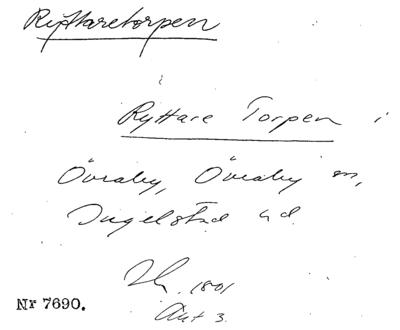 Ryttaretorpen
Ryttare Torpen i
Övraby, Övraby sn,
Ingelstad hd.
1801
Akt 3.
Nr 7690.